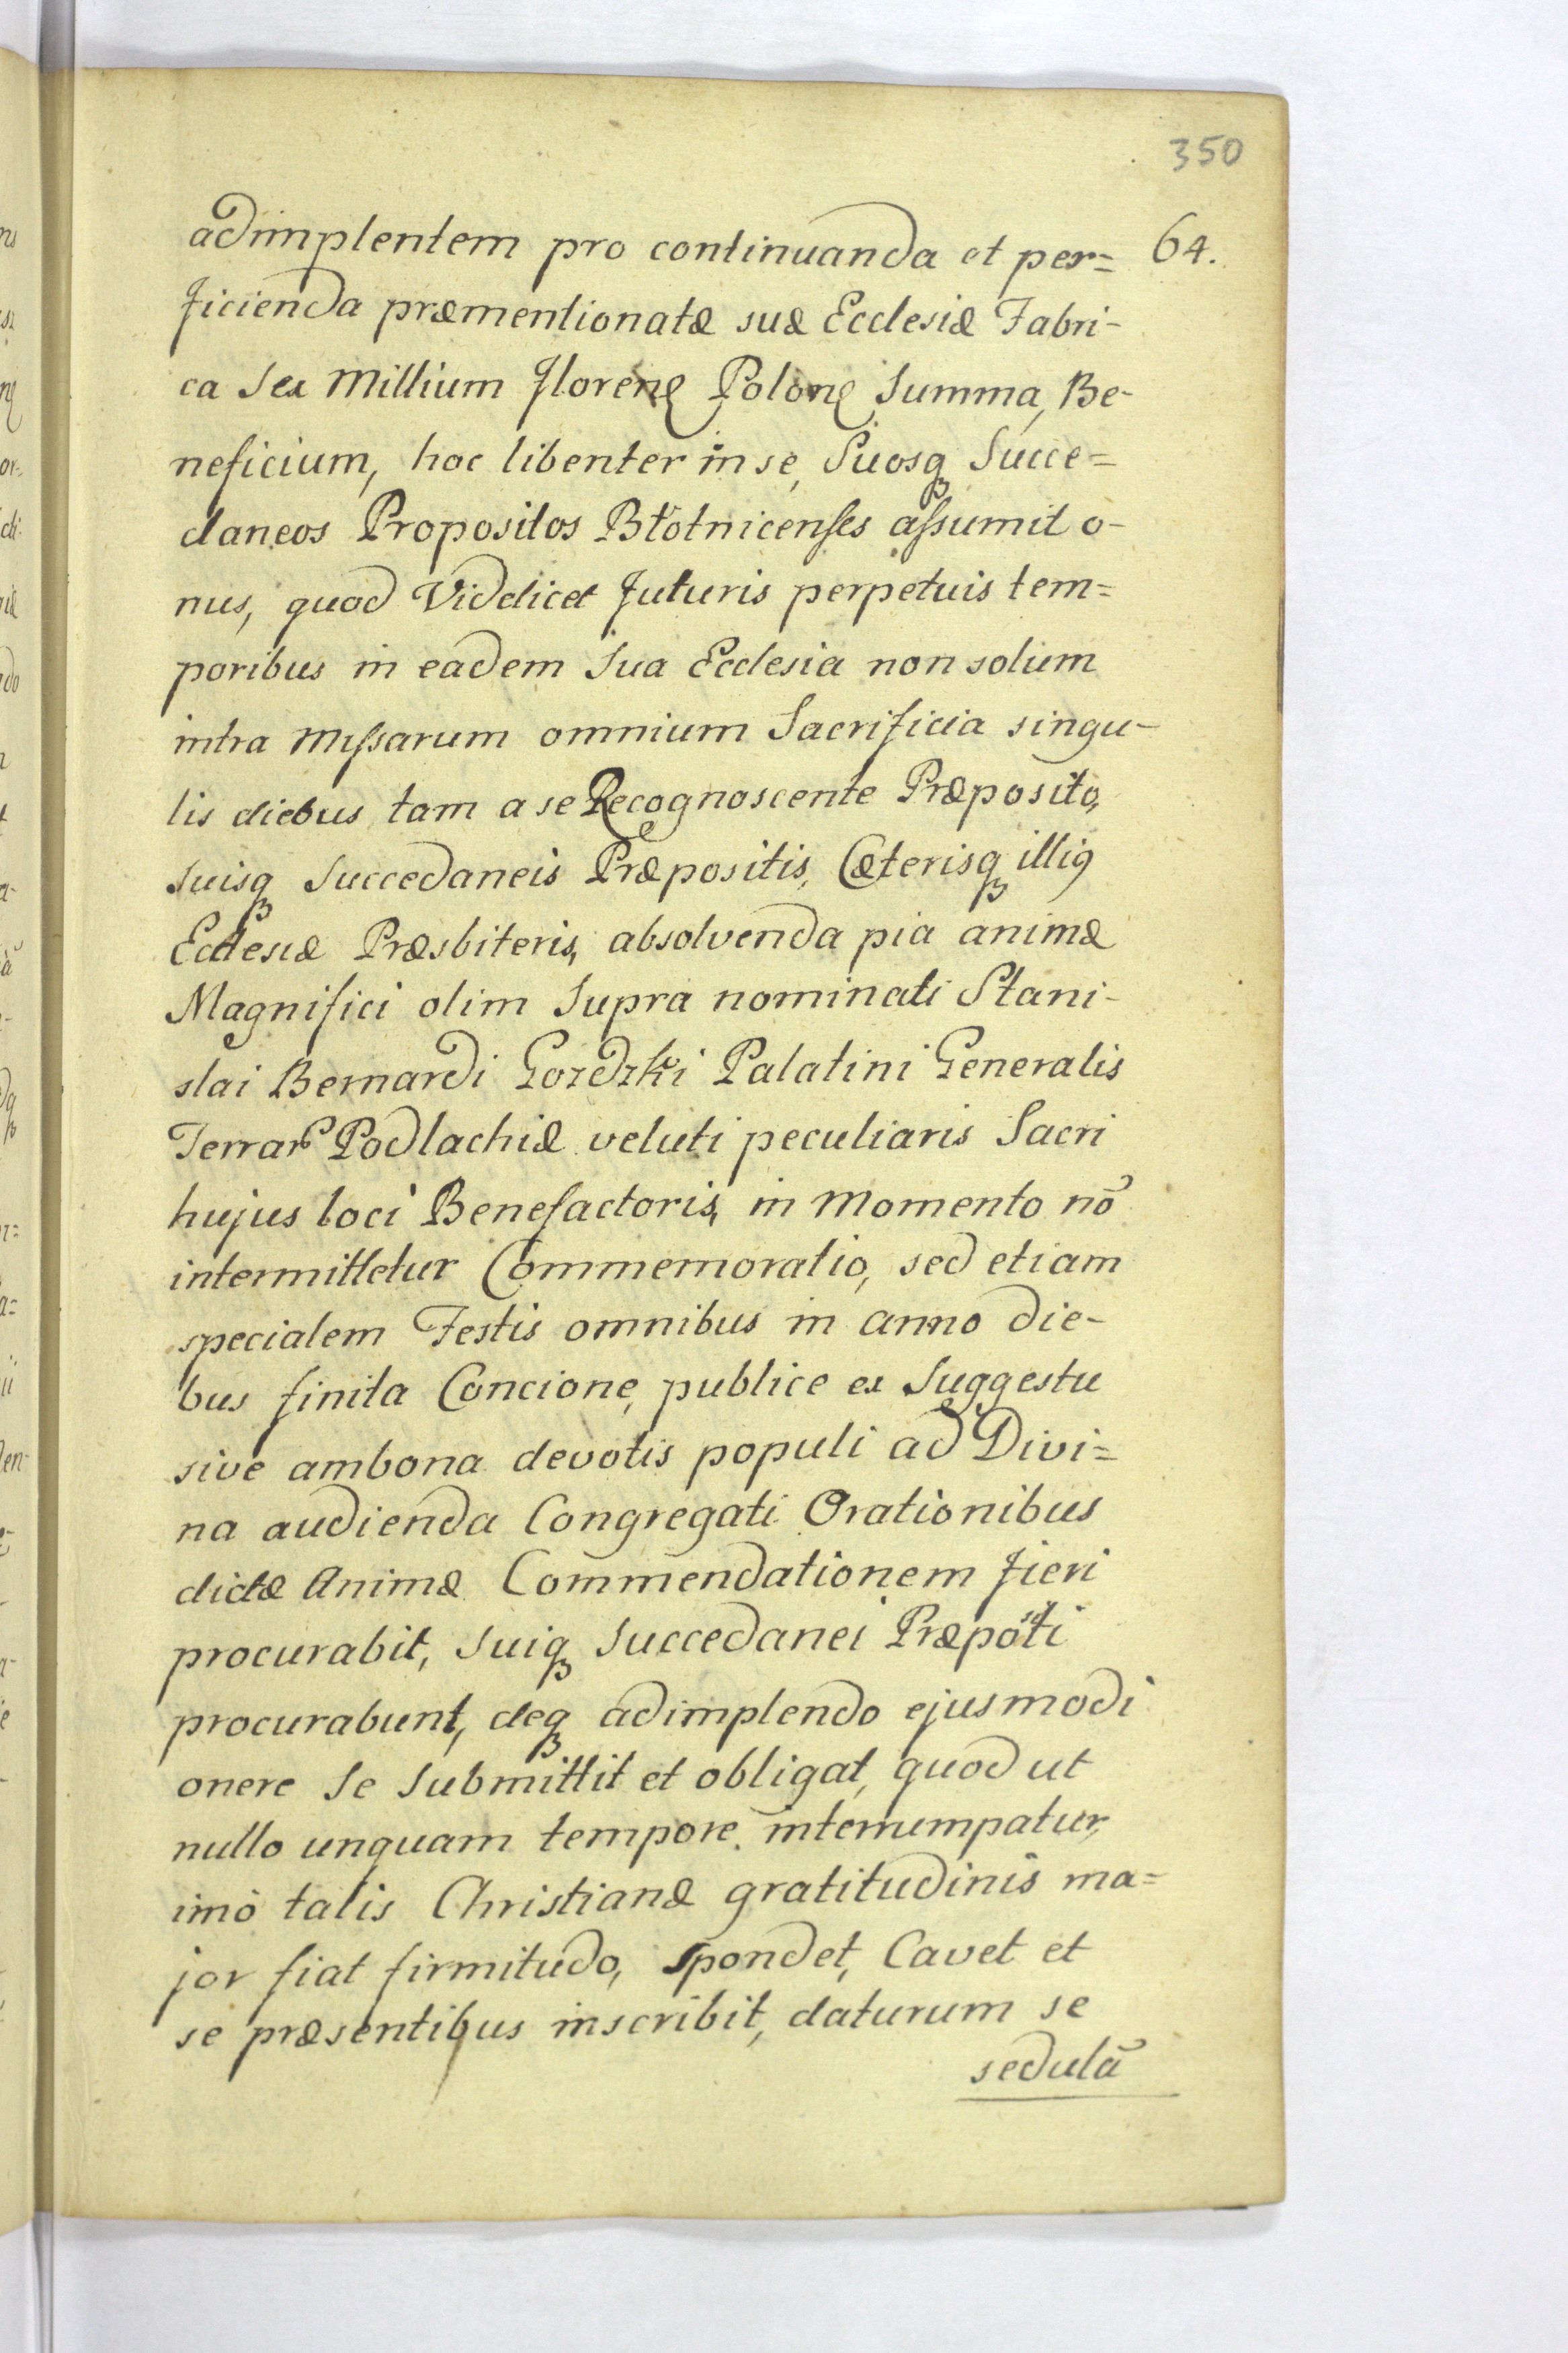 350
adimplentem pro continuanda et per= 64.
ficienda præmentionatæ suæ Ecclesiæ Fabri-
ca Sex Millium floren Polon Summa, Be-
neficium, hoc libenter in se, Suosq Succe=
daneos Propositos Błotnicenses assumit o-
nus, quod Videlicet futuris perpetuis tem=
poribus in eadem Sua Ecclesia non solum
intra Missarum omnium Sacrificia singu-
lis diebus tam a se Recognoscente Præposito,
suisq Succedaneis Præpositis, Cæterisq illig
Ecclesiæ Præsbiteris, absolvenda pia animæ
Magnifici olim Supra nominati Stani-
slai Bernardi Gozdzki Palatini Generalis
Terrar Podlachiæ veluti peculiaris Sacri
hujus loci Benefactoris, in Momento nō
intermittetur Commemoratio, sed etiam
specialem Festis omnibus in anno die-
bus finita Concione, publice ex Suggestu
sive ambona devotis populi ad Divi=
na audienda Congregati Orationibus
dictæ Animæ Commendationem fieri
procurabit, Suiq Succedanei Præpositi
procurabunt, deq adimplendo ejusmodi
onere Se Submittit et obligat, quod ut
nullo unquam tempore interrumpatur,
imò talis Christianæ gratitudinis ma=
jor fiat firmitudo, Spondet, Cavet et
se præsentibus inscribit, daturum se
sedulā